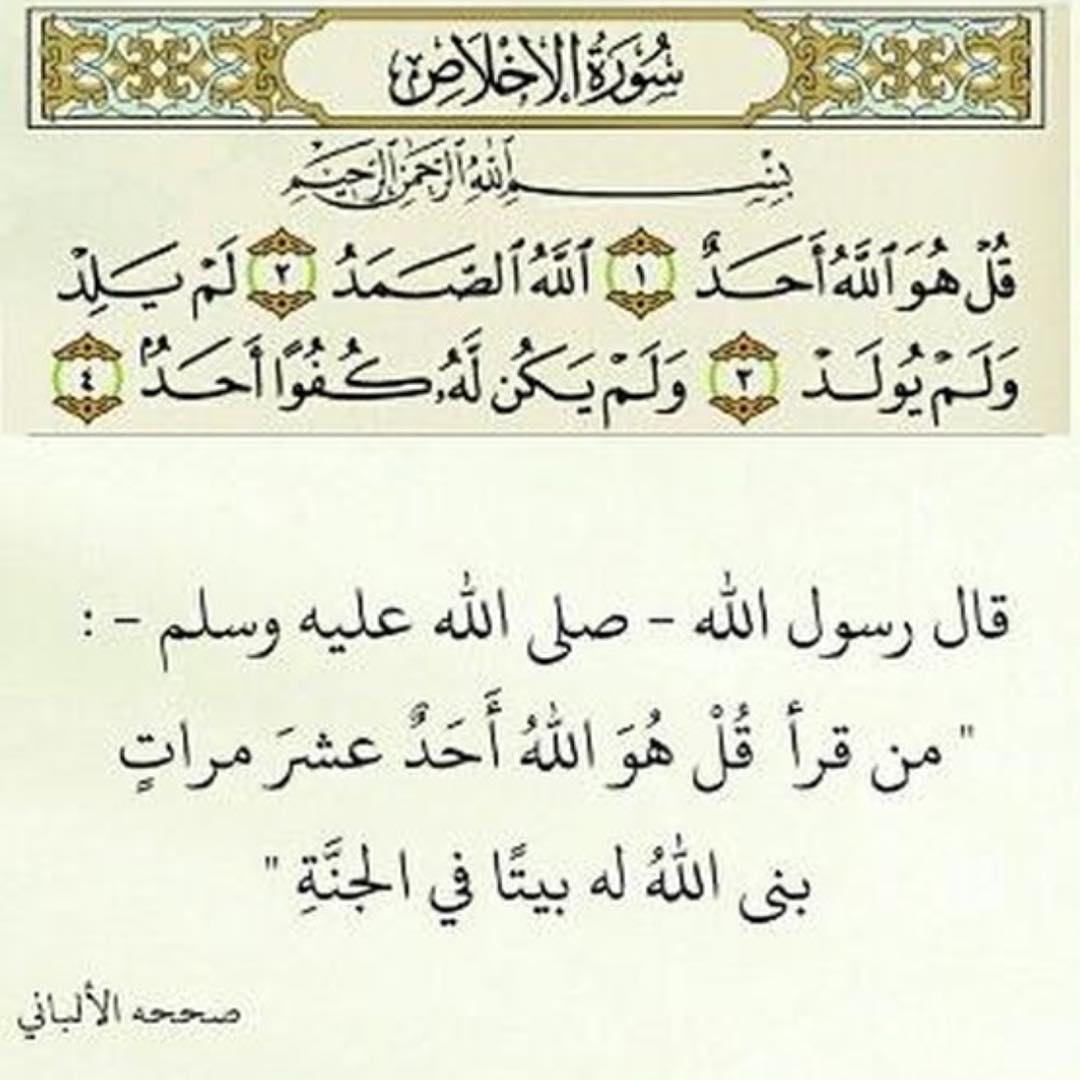 سُورَةُ الإِخْلَاصِ
بِسْمِ ٱللَّهِ ٱلرَّحْمَٰنِ ٱلرَّحِيمِ
قُلْ هُوَ ٱللَّهُ أَحَدٌ ١ ٱللَّهُ ٱلصَّمَدُ ٢ لَمْ يَلِدْ
وَلَمْ يُولَدْ ٣ وَلَمْ يَكُن لَّهُۥ كُفُوًا أَحَدٌۢ ٤
قال رسول الله - صلى الله عليه وسلم - :
" من قرأ قُلْ هُوَ اللهُ أَحَدٌ عشرَ مراتٍ
بنى اللهُ له بيتًا في الجنَّةِ "
صححه الألباني